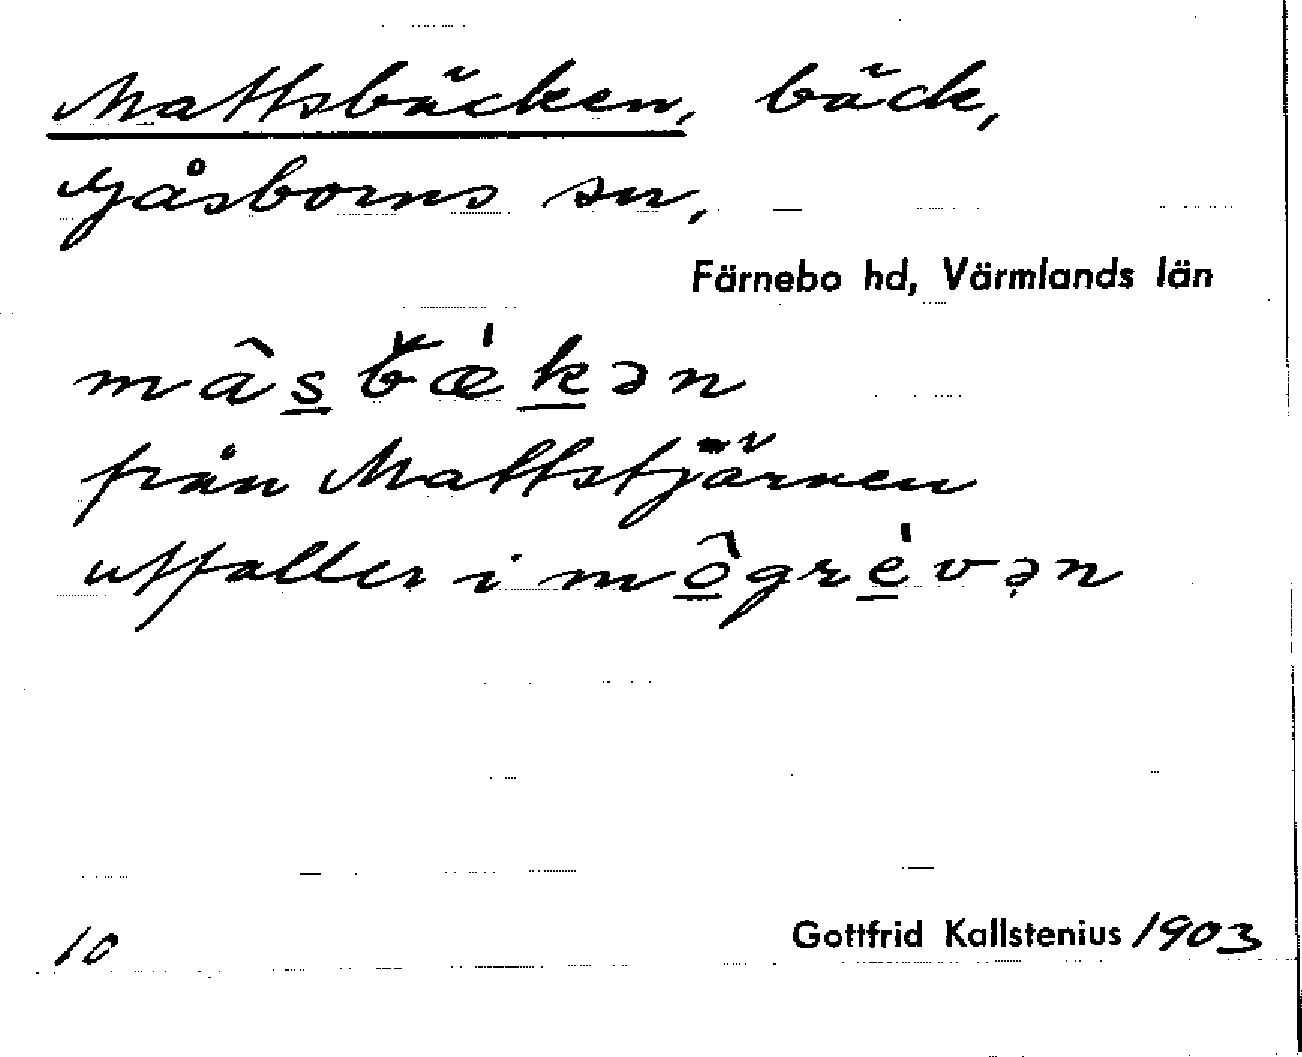 Mattsbäcken, bäck,
Gåsborns sn,
Färnebo hd, Värmlands län
mâs̲bǽk̲ən
från Mattstjärnen
utfaller i mô̲gré̲vən
10
Gottfrid Kallstenius 1903